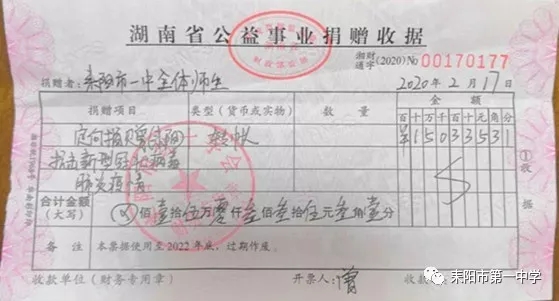 湖南省公益事业捐赠收据
湘财通字(2020)No 00170177
捐赠者：耒阳市一中全体师生 2020年2月17日
捐赠项目 类型（货币或实物） 数量 金额
百十万千百十元角分
定向捐赠 ¥15033531
抗击新型冠状病毒
肺炎疫情
合计金额（大写） ⊗佰壹拾伍万零仟叁佰叁拾伍元叁角壹分
①收据
备注 本票据使用至2022年底，过期作废。
收款单位（财务专用章） 开票人： 收款
耒阳市第一中学